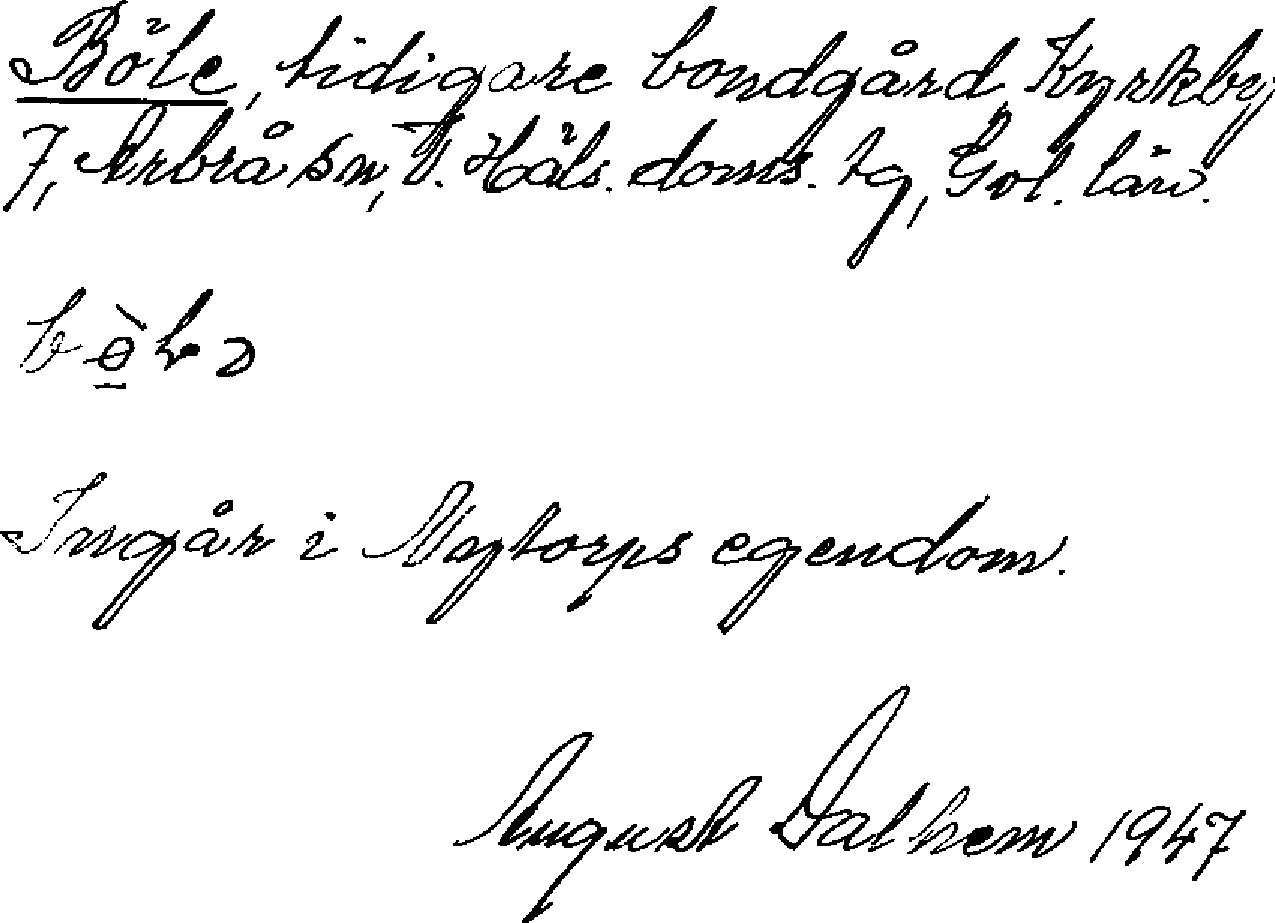 Böle, tidigare bondgård, Kyrkby
7, Arbrå sn, V. Häls. doms. tg, Gvl. län.
Ingår i Nytorps egendom.
August Dalhem 1947